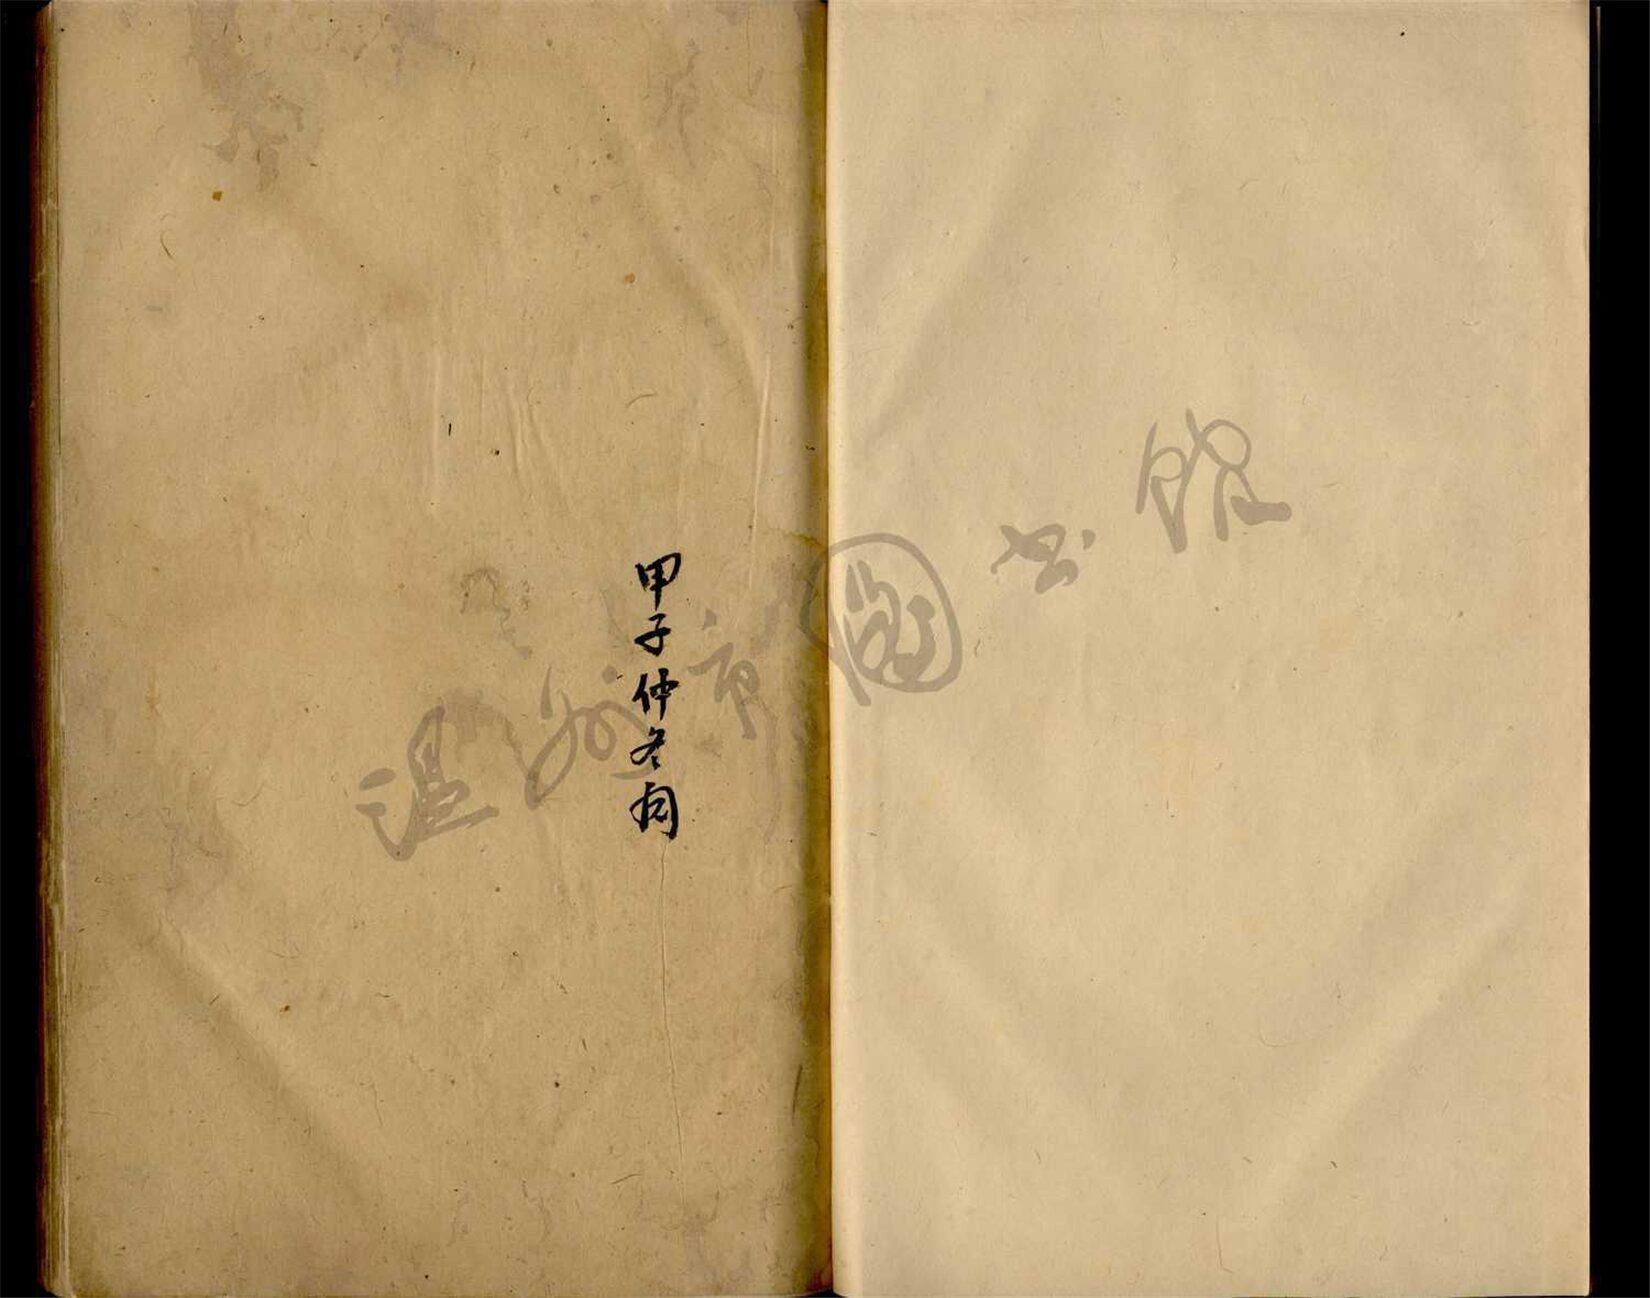 甲子仲冬月
温州市圖书館